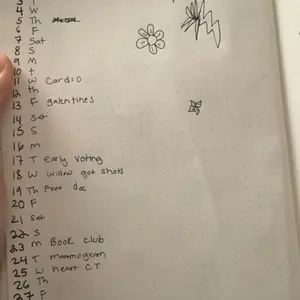 3 T
4 W
5 Th
6 F
7 Sat
8 S
9 M
10 t
11 W Cardio
12 th
13 F galentines
14 Sat
15 S
16 m
17 T early voting
18 W willow got shots
19 Th Foot doc
20 F
21 Sat
22 S
23 m Book club
24 T mammogram
25 W heart CT
26 Th
27 F